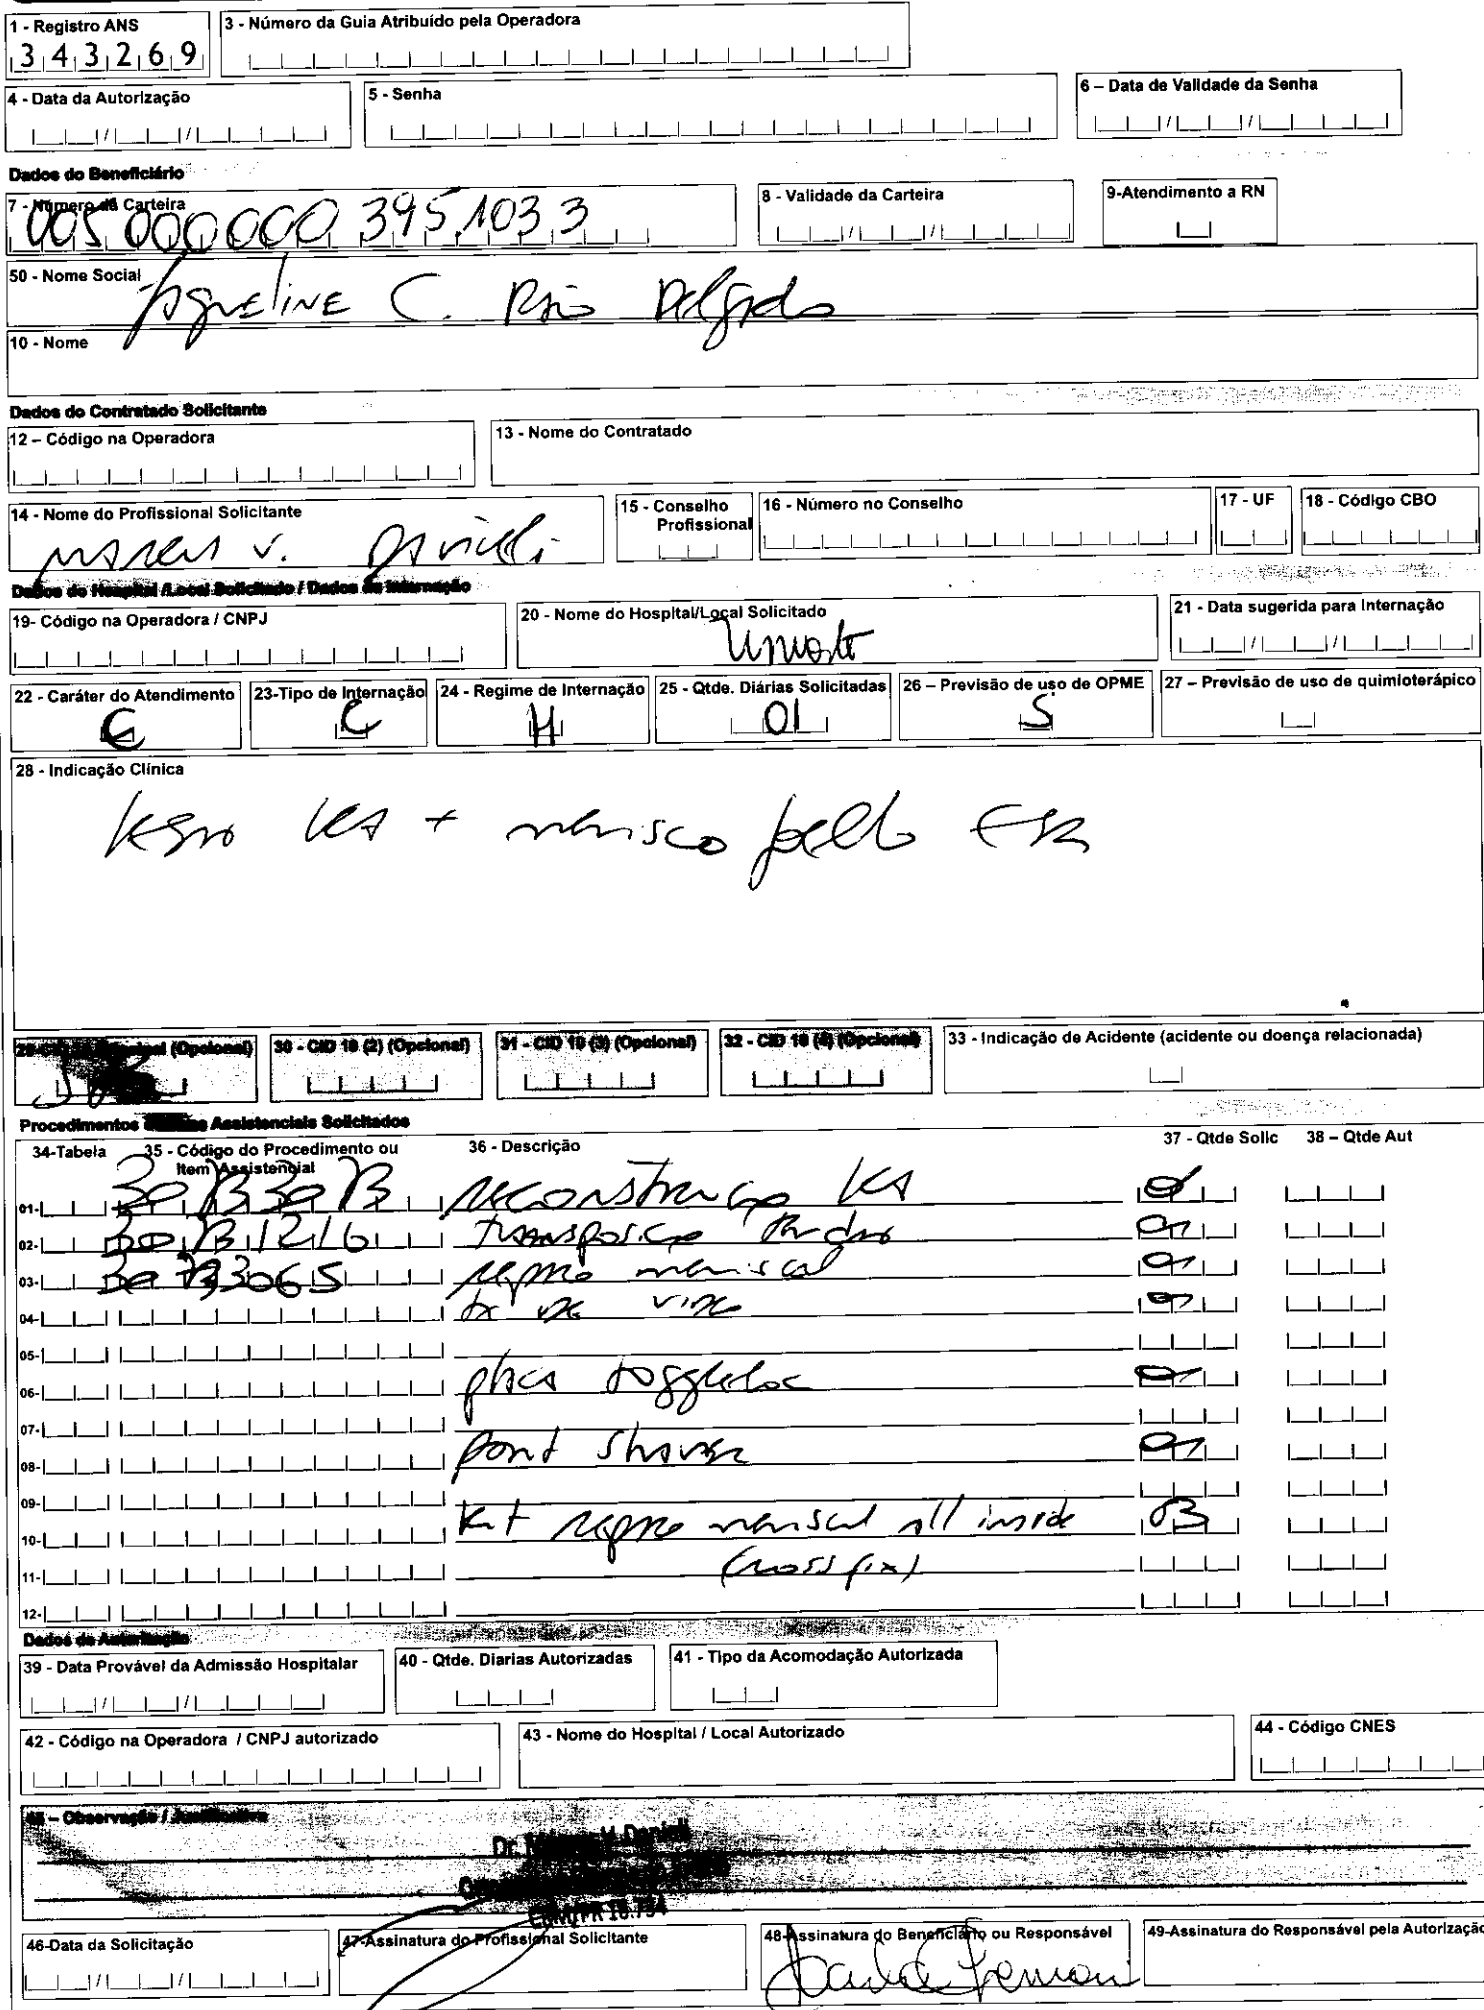 1 - Registro ANS
3 4 3 2 6 9
3 - Número da Guia Atribuído pela Operadora
4 - Data da Autorização
5 - Senha
6 – Data de Validade da Senha
Dados do Beneficiário
7 - Número da Carteira
005 000000 395 1033
8 - Validade da Carteira
9-Atendimento a RN
50 - Nome Social
Jaqueline C. Delgado
10 - Nome
Dados do Contratado Solicitante
12 – Código na Operadora
13 - Nome do Contratado
14 - Nome do Profissional Solicitante
V.
15 - Conselho Profissional
16 - Número no Conselho
17 - UF
18 - Código CBO
Dados do Hospital /Local Solicitado / Dados da Internação
19- Código na Operadora / CNPJ
20 - Nome do Hospital/Local Solicitado
21 - Data sugerida para Internação
22 - Caráter do Atendimento
E
23-Tipo de Internação
C
24 - Regime de Internação
H
25 - Qtde. Diárias Solicitadas
01
26 – Previsão de uso de OPME
S
27 – Previsão de uso de quimioterápico
28 - Indicação Clínica
+ menisco joelho
(Opcional)
30 - CID 10 (2) (Opcional)
31 - CID 10 (3) (Opcional)
32 - CID 10 (4) (Opcional)
33 - Indicação de Acidente (acidente ou doença relacionada)
Procedimentos Assistenciais Solicitados
34-Tabela
35 - Código do Procedimento ou Item Assistencial
36 - Descrição
37 - Qtde Solic
38 – Qtde Aut
01- reconstrução
02- transposição
03- 30733065 reparo meniscal
04-
05-
06- placa toggleloc
07-
08- pont shaver
09-
10- Kit reparo meniscal all inside 03
11- (crossfix)
12-
Dados da Autorização
39 - Data Provável da Admissão Hospitalar
40 - Qtde. Diarias Autorizadas
41 - Tipo da Acomodação Autorizada
42 - Código na Operadora / CNPJ autorizado
43 - Nome do Hospital / Local Autorizado
44 - Código CNES
– Observação / Justificativa
Dr.
46-Data da Solicitação
47-Assinatura do Profissional Solicitante
48-Assinatura do Beneficiário ou Responsável
49-Assinatura do Responsável pela Autorização